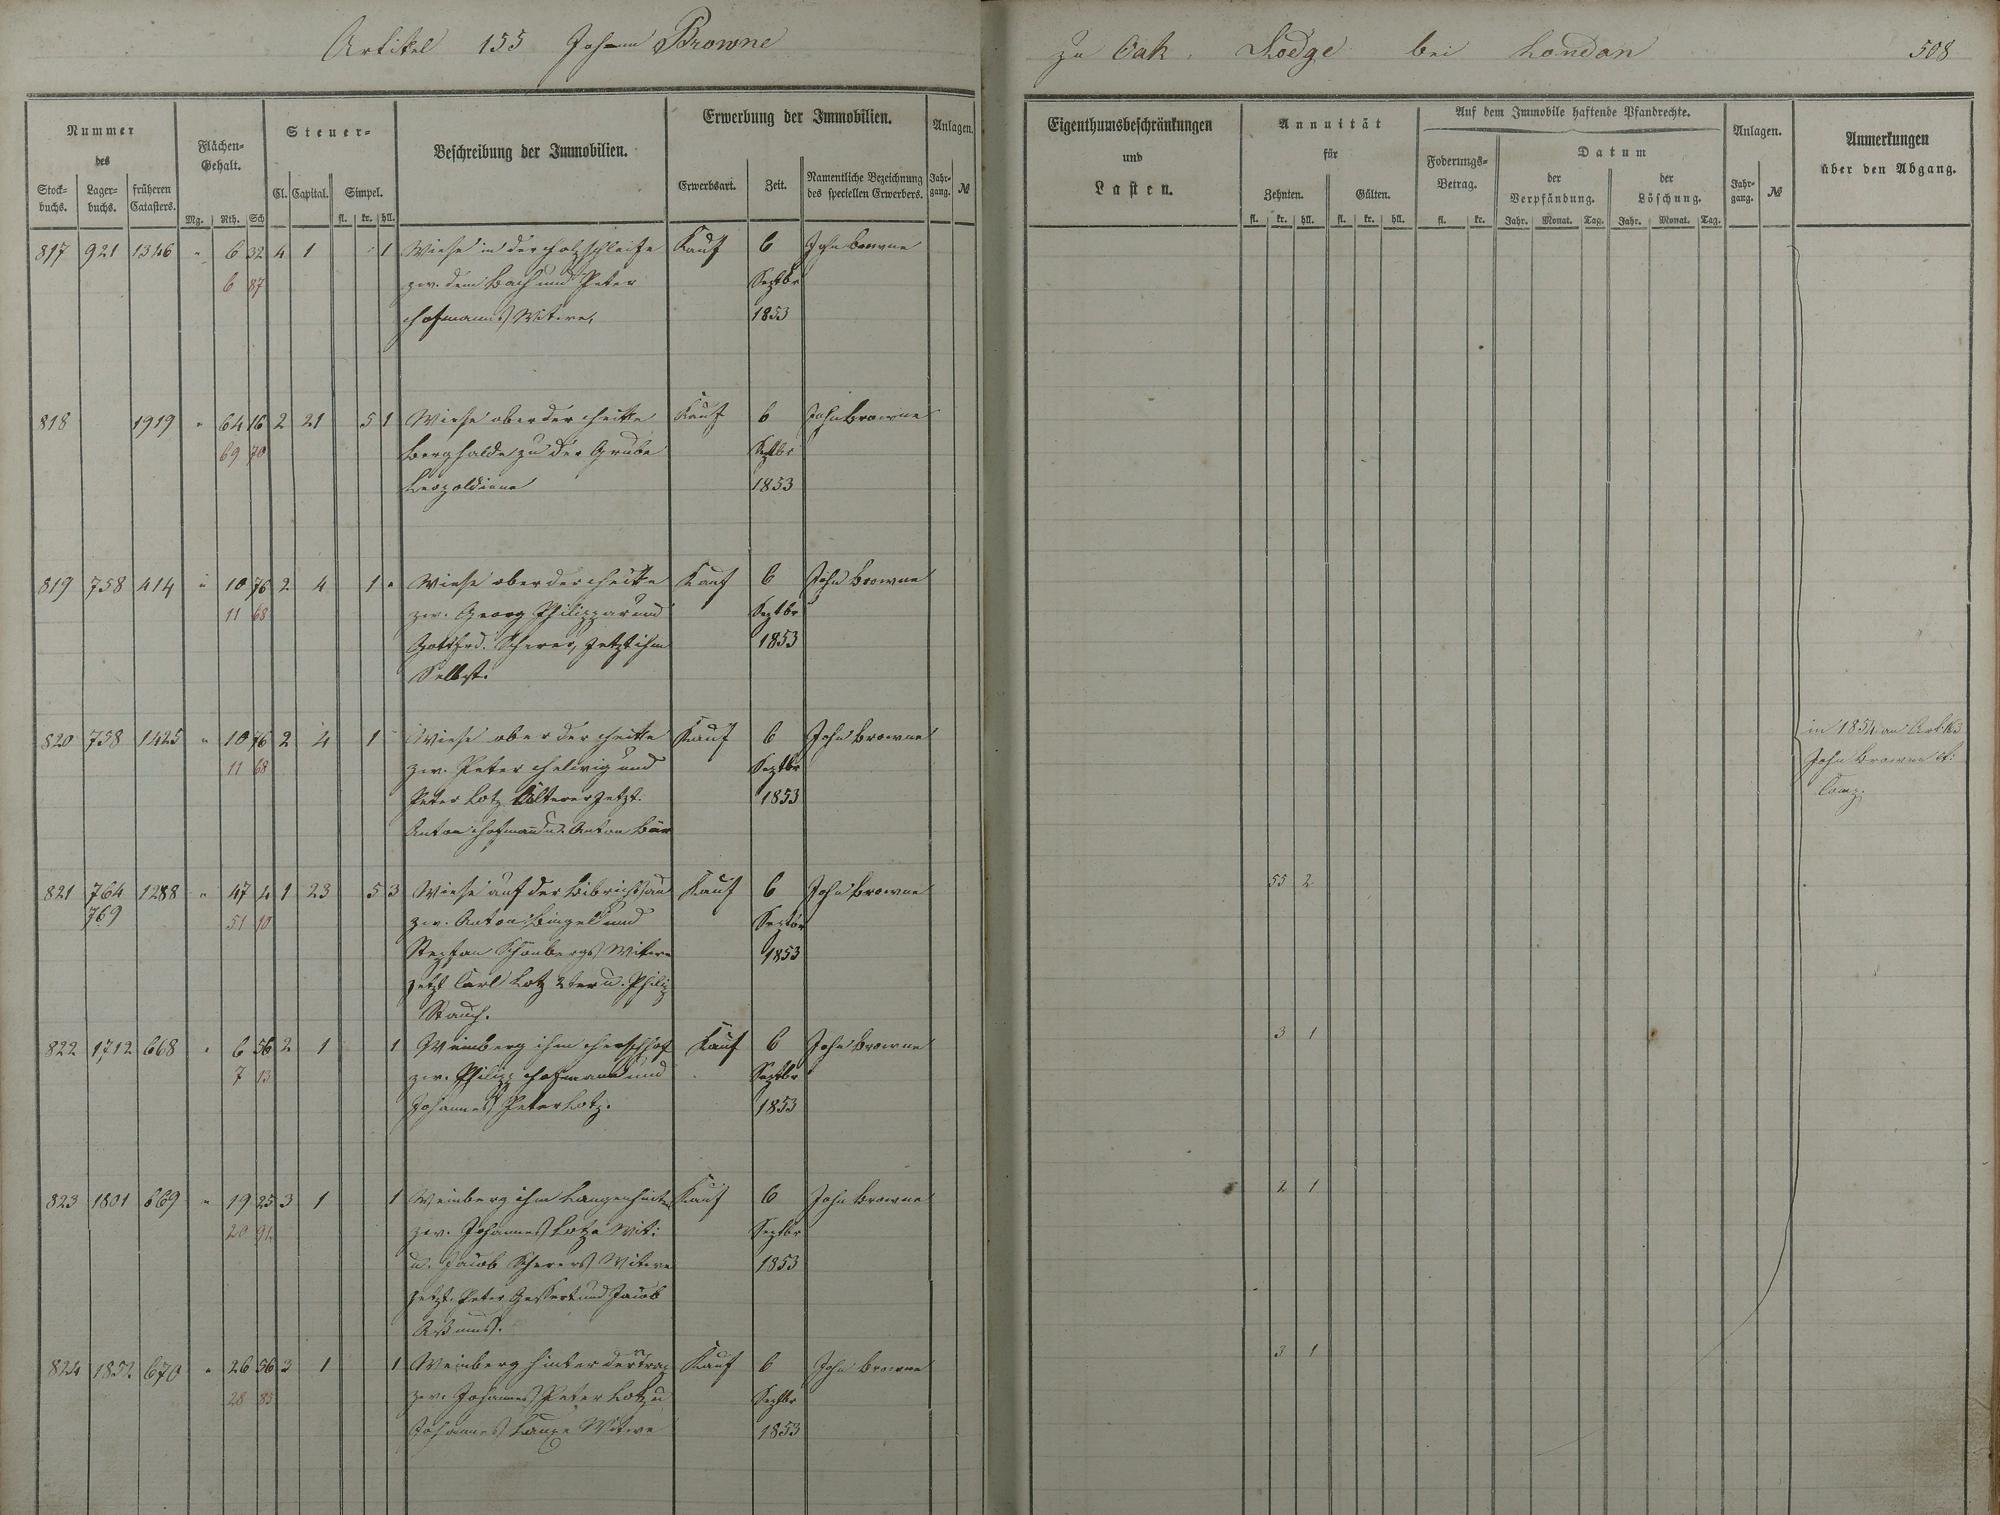 Artikel 155 Johann Browne
zu Oak Lodge bei London
508
Nummer
des
Stock-
buchs.
Lager-
buchs.
früheren
Catasters.
Flächen-
Gehalt.
Mg. Rth. Sch
Steuer-
Cl. Capital. Simpel.
fl. kr. hll.
Beschreibung der Immobilien.
Erwerbung der Immobilien.
Erwerbsart. Zeit.
Namentliche Bezeichnung
des speciellen Erwerbers.
Anlagen.
Jahr-
gang. №
Eigenthumsbeschränkungen
und
Lasten.
Annuität
für
Zehnten. Gülten.
fl. kr. hll. fl. kr. hll.
Auf dem Immobile haftende Pfandrechte.
Foderungs-
Betrag.
fl. kr.
Datum
der
Verpfändung.
Jahr. Monat. Tag.
der
Löschung.
Jahr. Monat. Tag.
Anlagen.
Jahr-
gang. №
Anmerkungen
über den Abgang.
817 921 1346 " 6 32 4 1 1 Wiese in der Holzschleife Kauf 6 John Browne
6 87 zw. dem Bach und Peter Septbr
Hofmanns Witwe, 1853
818 1919 " 64 16 2 21 5 1 Wiese ober der Hütte Kauf 6 John Browne
69 70 Berghalde zu der Grube Septbr
Leopoldine 1853
819 758 414 " 10 76 2 4 1 " Wiese ober der Hütte Kauf 6 John Browne
11 68 zw. Georg Philippar und Septbr
Gottfrd. Scherer, jetzt ihm 1853
Selbst.
820 758 1425 " 10 76 2 4 1 Wiese ober der Hütte Kauf 6 John Browne
11 68 zw. Peter Helwig und Septbr
Peter Lotz Älterer jetzt 1853
Anton Hofmann u. Anton Bär
in 1854 an Art.
John Browne et.
Comp.
821 764 1288 " 47 4 1 23 5 3 Wiese auf der Kauf 6 John Browne 55 2
769 51 10 zw. Anton Bingel und Septbr
Stephan Schönbergs Witwe 1853
jetzt Carl Lotz 2ter u. Philip
Stauch.
822 1712 668 " 6 56 2 1 1 Weinberg ihm Kauf 6 John Browne 3 1
7 13 zw. Philipp Hofmann und Septbr
Johannes Peter Lotz. 1853
823 1801 669 " 19 25 3 1 1 Weinberg ihm Kauf 6 John Browne 2 1
20 91 zw. Johannes Lotze Wit: Septbr
u. Jacob Scherers Witwe 1853
jetzt. Peter Gessert und Jacob
824 1852 670 " 26 56 3 1 1 Weinberg hinter der Kauf 6 John Browne 3 1
28 83 zw. Johannes Peter Lotz u Septbr
Johannes Witwe 1853